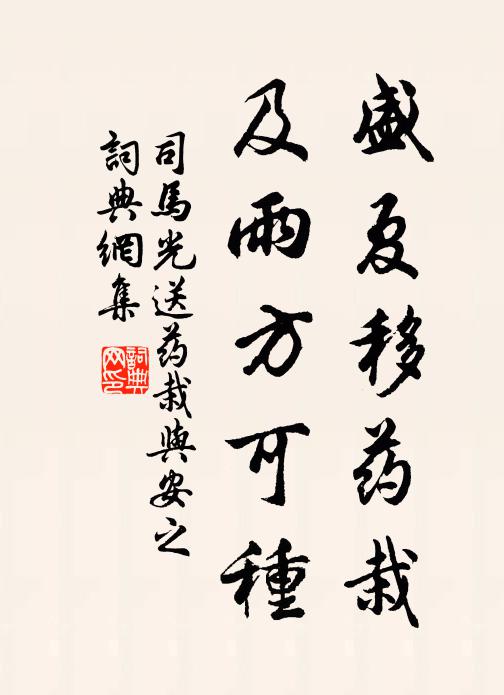 盛夏移药栽
及雨方可種
司馬光送药栽與安之
詞典網集
詞典网印